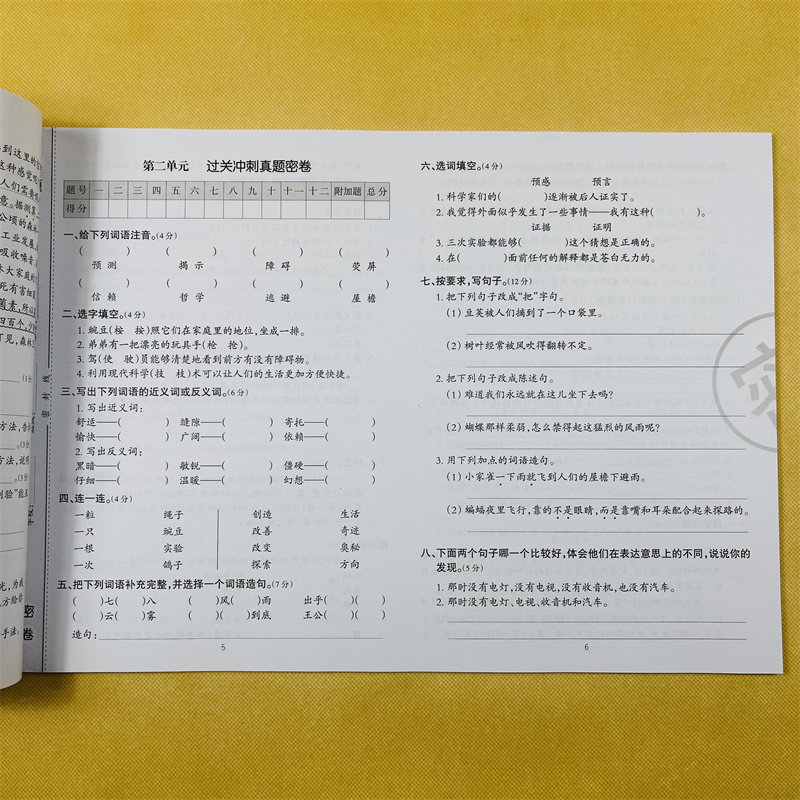 到这里的
这种感觉
人们需要
意。据测算
公顷的森林
工业发展
吸收噪音
木大家庭的
死有害细菌
菌素,所以
四百个,
可见,森林
(1分
方法,告
(3分
方法,说明
(3分
创验”能
光,为我
方给曾
手法:
密封线
学校:
密
卷
第二单元 过关冲刺真题密卷
题号 一 二 三 四 五 六 七 八 九 十 十一 十二 附加题 总分
得分
一、给下列词语注音。(4分)
( ) ( ) ( ) ( )
预测 揭示 障碍 荧屏
( ) ( ) ( ) ( )
信赖 哲学 逃避 屋檐
二、选字填空。(4分)
1. 豌豆(按 桉)照它们在家庭里的地位,坐成一排。
2. 弟弟有一把漂亮的玩具手(枪 抢)。
3. 驾(使 驶)员能够清楚地看到前方有没有障碍物。
4. 利用现代科学(技 枝)术可以让人们的生活更加方便快捷。
三、写出下列词语的近义词或反义词。(6分)
1. 写出近义词:
舒适——( ) 缝隙——( ) 寄托——( )
愉快——( ) 广阔——( ) 依赖——( )
2. 写出反义词:
黑暗——( ) 敏锐——( ) 僵硬——( )
仔细——( ) 温暖——( ) 幻想——( )
四、连一连。(4分)
一粒 绳子 创造 生活
一只 豌豆 改善 奇迹
一根 实验 改变 奥秘
一次 鸽子 探索 方向
五、把下列词语补充完整,并选择一个词语造句。(7分)
( )七( )八 ( )风( )雨 出乎( )( )
( )云( )雾 ( )( )到底 王公( )( )
造句:
5
六、选词填空。(4分)
预感 预言
1. 科学家们的( )逐渐被后人证实了。
2. 我觉得外面似乎发生了一些事情——我有这种( )。
证据 证明
3. 三次实验都能够( )这个猜想是正确的。
4. 在( )面前任何的解释都是苍白无力的。
七、按要求,写句子。(12分)
1. 把下列句子改成“把”字句。
(1) 豆荚被人们摘到了一个口袋里。
(2) 树叶经常被风吹得翻转不定。
2. 把下列句子改成陈述句。
(1) 难道我们永远就在这儿坐下去吗?
(2) 蝴蝶那样柔弱,怎么禁得起这猛烈的风雨呢?
3. 用下列加点的词语造句。
(1) 小家雀一下雨就飞到人们的屋檐下避雨。
(2) 蝙蝠夜里飞行,靠的不是眼睛,而是靠嘴和耳朵配合起来探路的。
八、下面两个句子哪一个比较好,体会他们在表达意思上的不同,说说你的
发现。(5分)
1. 那时没有电灯,没有电视,没有收音机,也没有汽车。
2. 那时没有电灯、电视、收音机和汽车。
6
密